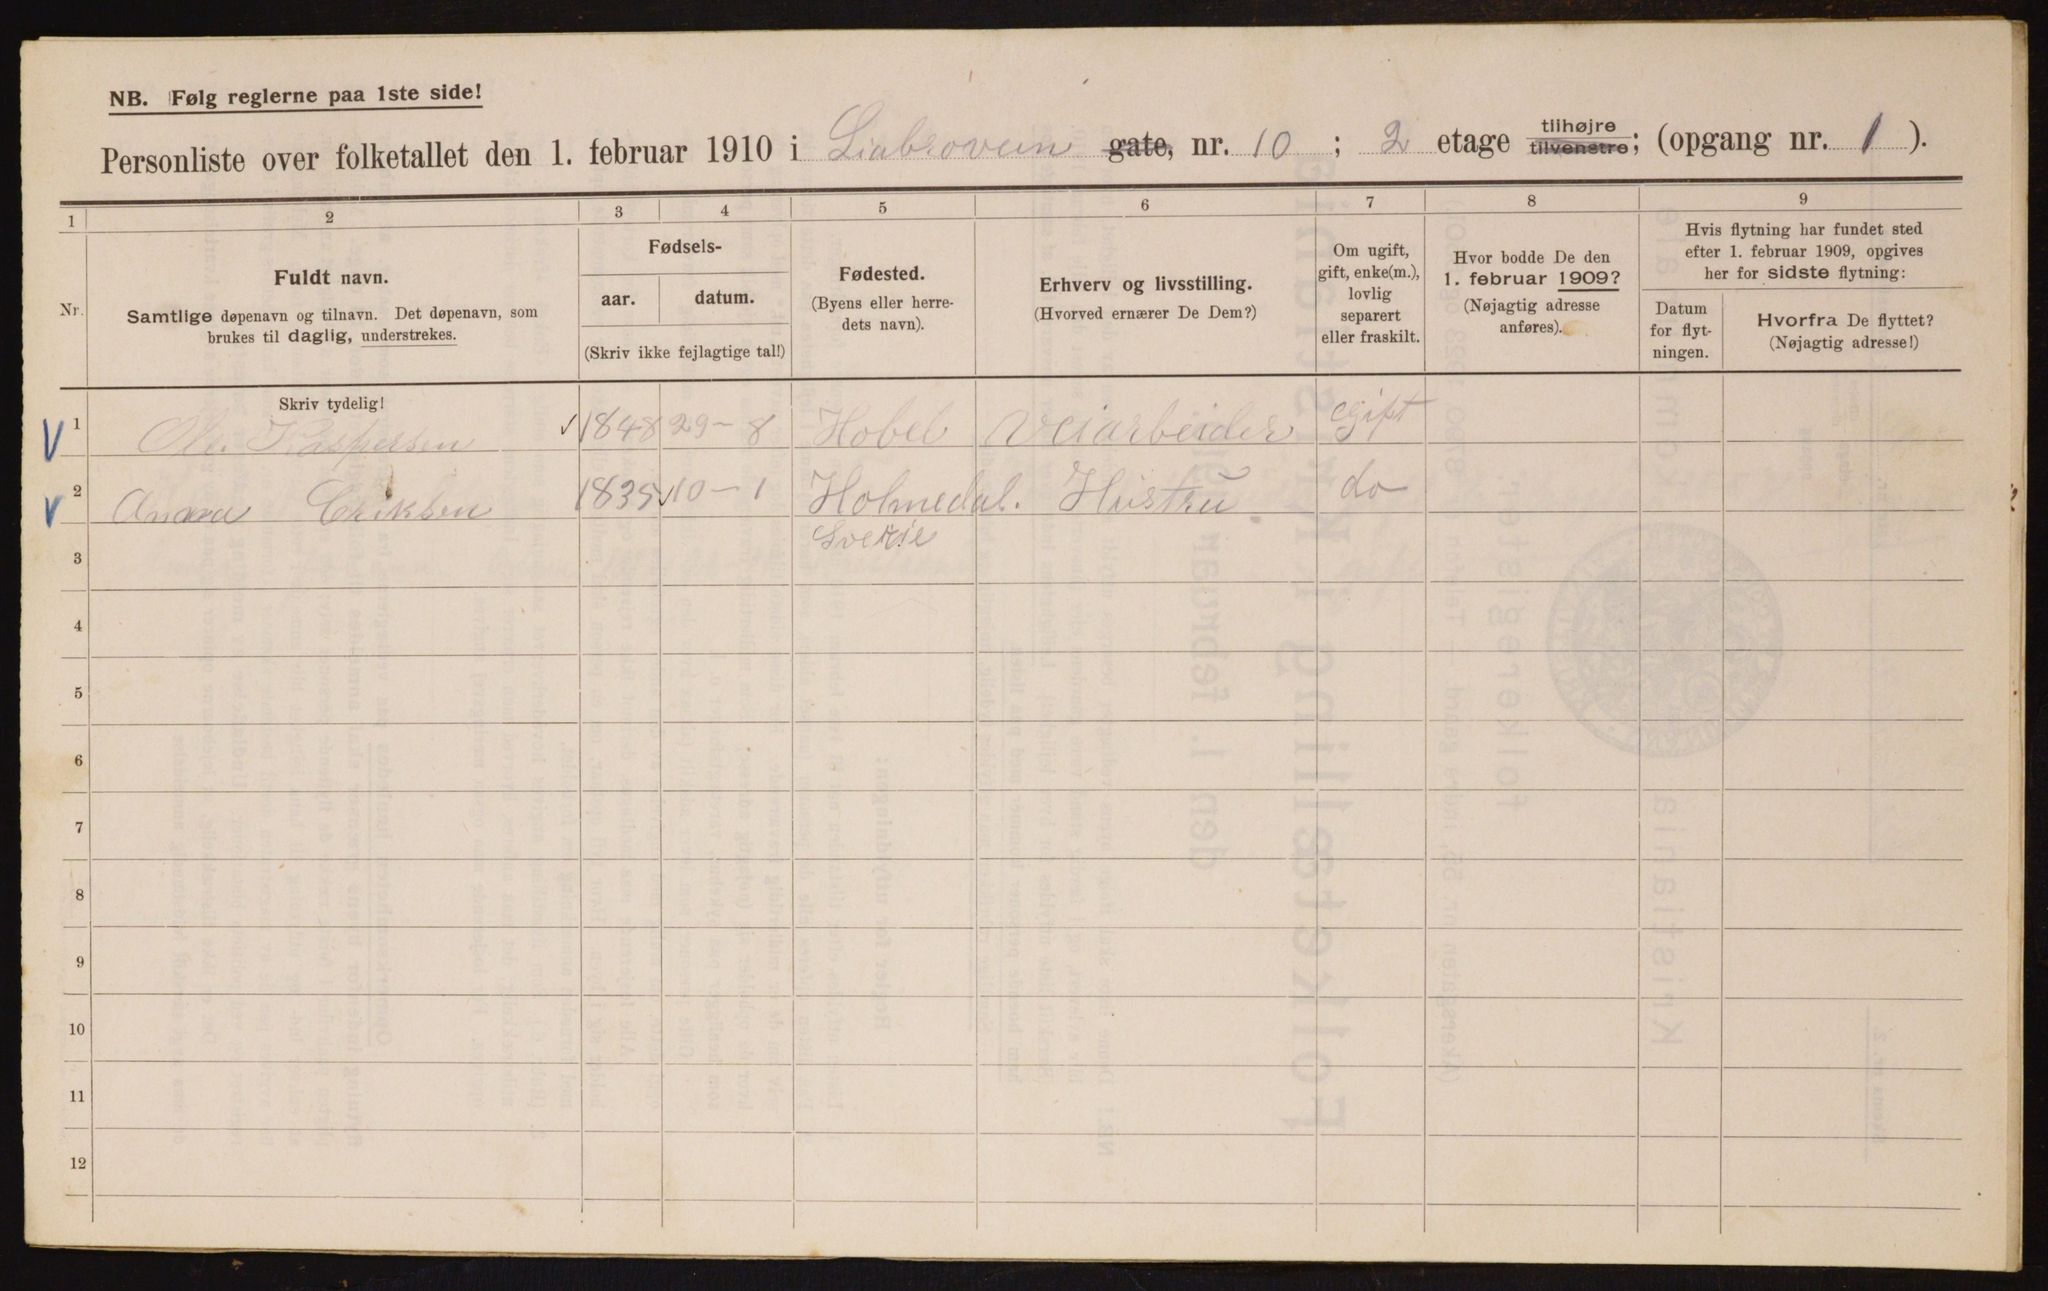 NB. Følg reglerne paa 1ste side!
Personliste over folketallet den 1. februar 1910 i Liabroveien gate, nr. 10 ; 2 etage tilhøjre tilvenstre; (opgang nr. 1 ).
1 2 3 4 5 6 7 8 9
Nr.
Fuldt navn.
Samtlige døpenavn og tilnavn. Det døpenavn, som
brukes til daglig, understrekes.
Fødsels-
aar. datum.
(Skriv ikke fejlagtige tal!)
Fødested.
(Byens eller herre-
dets navn).
Erhverv og livsstilling.
(Hvorved ernærer De Dem?)
Om ugift,
gift, enke(m.),
lovlig
separert
eller fraskilt.
Hvor bodde De den
1. februar 1909?
(Nøjagtig adresse
anføres).
Hvis flytning har fundet sted
efter 1. februar 1909, opgives
her for sidste flytning:
Datum
for flyt-
ningen.
Hvorfra De flyttet?
(Nøjagtig adresse!)
Skriv tydelig!
V 1 Ole Kaspersen 1848 29-8 Hobel Veiarbeider Gift
V 2 Eriksen 1835 10-1 Holmedal. Hustru do
3 Sverie
4
5
6
7
8
9
10
11
12